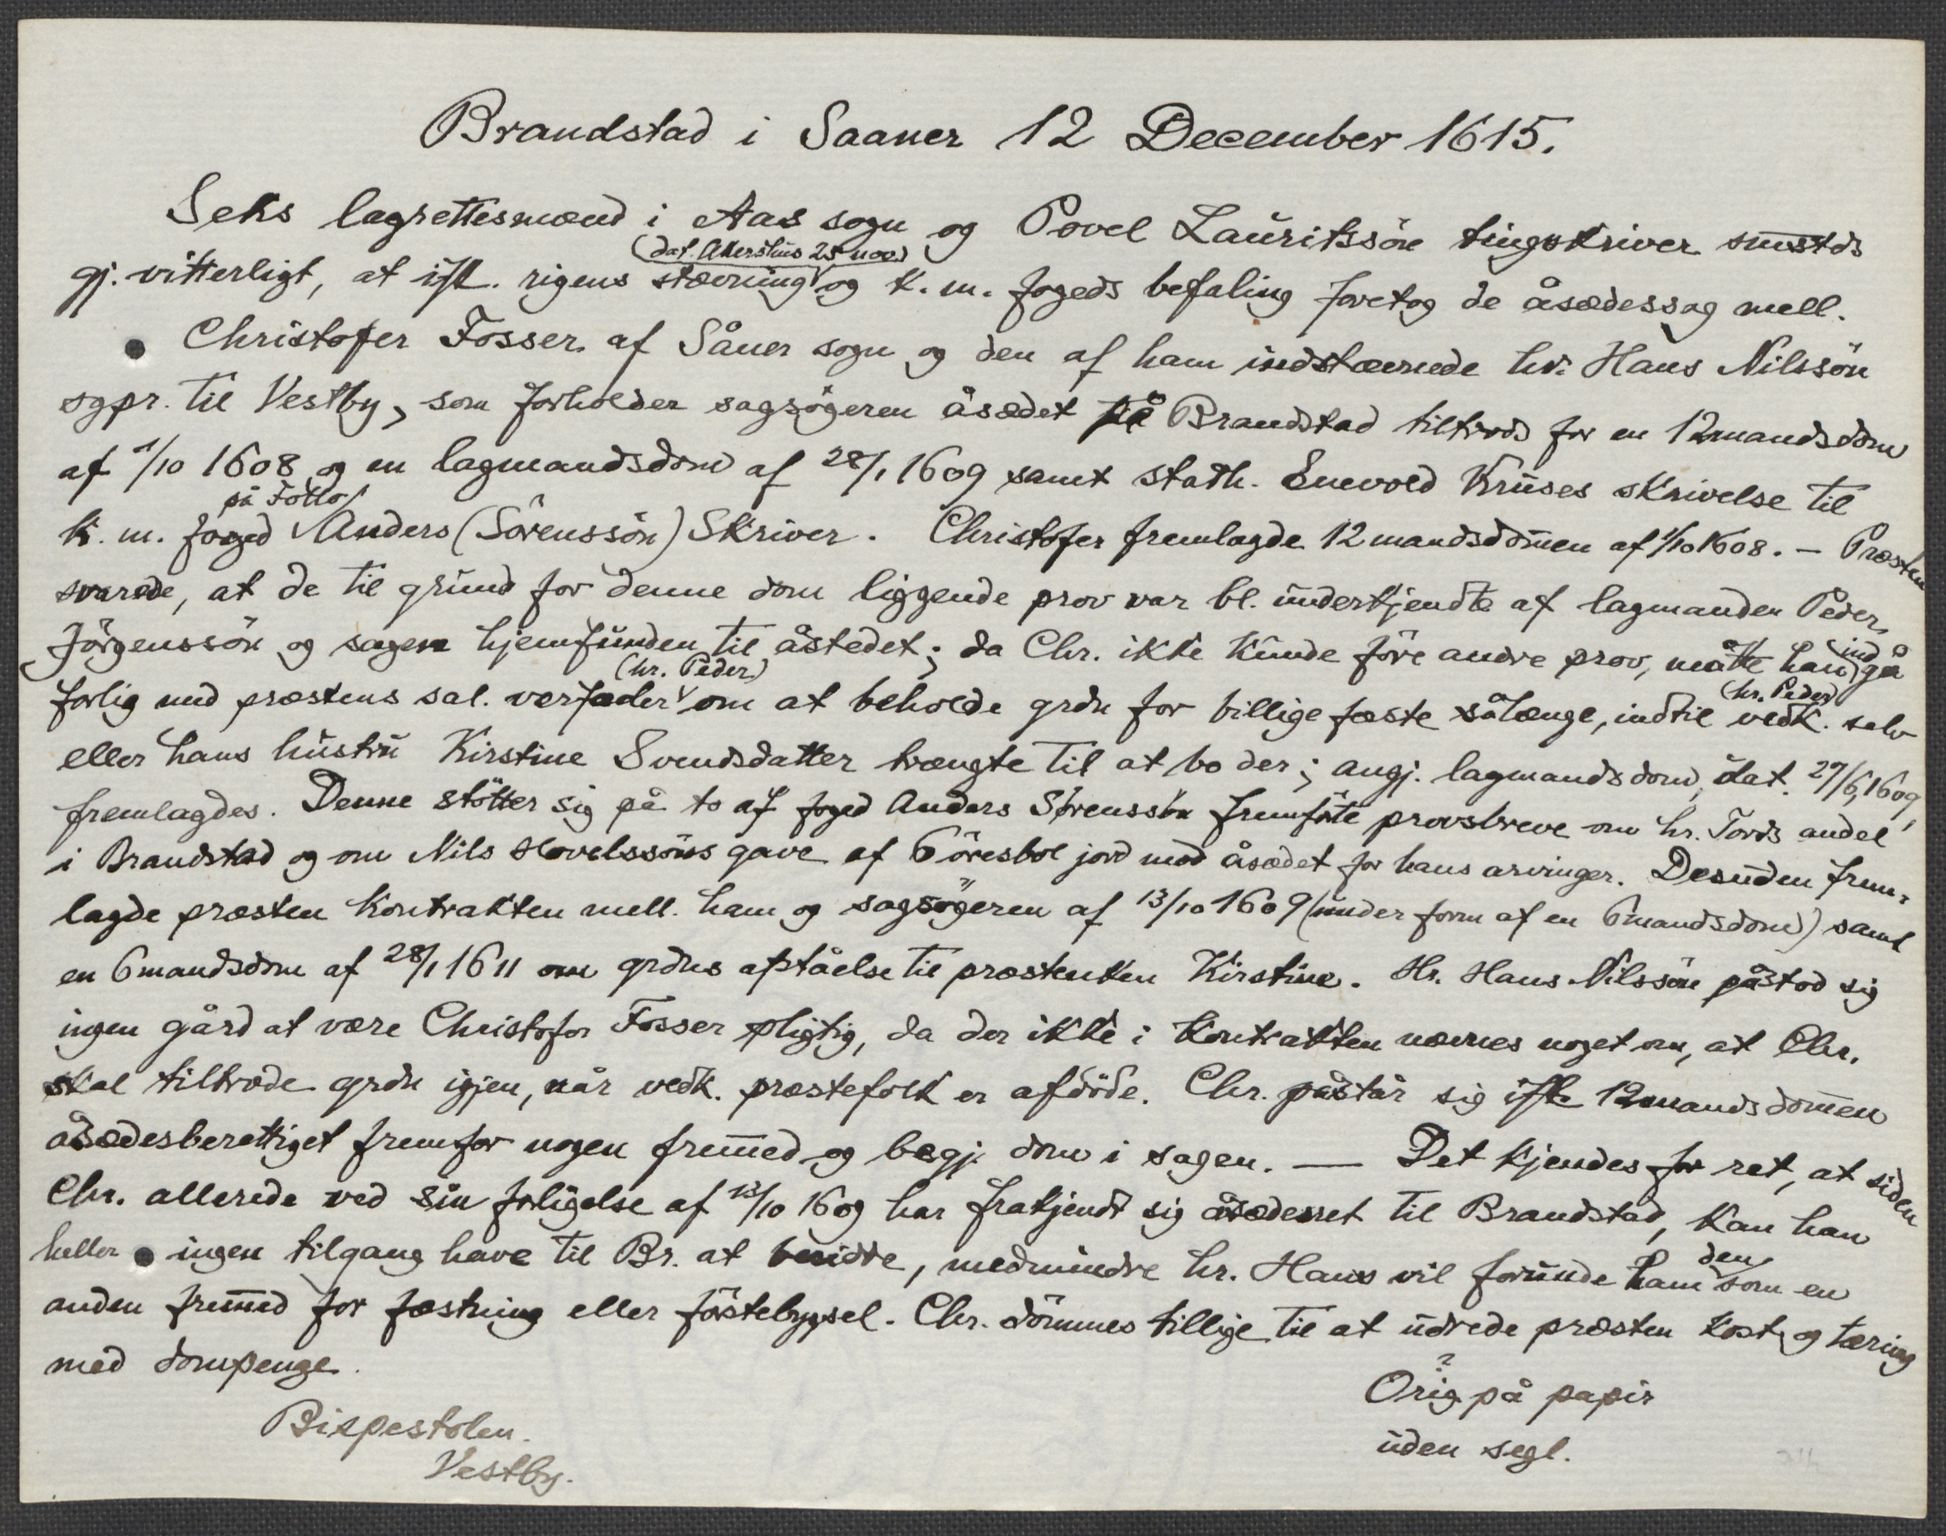 Brandstad i Saaner 12 December 1615.
Seks lagrettesmænd i Aas sogn og Povel Lauritssön tingskriver smstds
(dat. Akershus 25 nov.)
gj. vitterligt, at ifl. rigens stævning og k. m. fogeds befaling foretog de åsædessag mell.
Christofer Fosser af Såner sogn og den af ham indstævnede hr. Hans Nilssön
sgpr. til Vestby, som forholder sagsögeren åsædet på Brandstad tiltrods for en 12mandsdom
af 1/10 1608 og en lagmandsdom af 28/1 1609 samt stath. Enevold Kruses skrivelse til
på Follo
k. m. foged Anders (Sörenssön) Skriver. Christofer fremlagde 12mandsdommen af 1/10 1608. – Præsten
svarede, at de til grund for denne dom liggende prov var bl. underkjendte af lagmanden Peder
Jörgenssön og sagen hjemfunden til åstedet; da Chr. ikke kunde före andre prov, måtte han indgå
(hr. Peder) (hr. Peder)
forlig med præstens sal. værfader om at beholde grdn for billige fæste sålænge, indtil vedk. selv
eller hans hustru Kirstine Svendsdatter trængte til at bo der; angj. lagmandsdom, dat. 27/6 1609,
fremlagdes. Denne stötter sig på to af foged Anders Sørenssön fremförte provsbreve om hr. Tords andel
i Brandstad og om Nils Hovelssöns gave af Göresbol jord mod åsædet for hans arvinger. Desuden frem-
lagde præsten kontrakten mell. ham og sagsögeren af 13/10 1609 (under form af en 6mandsdom) samt
en 6mandsdom af 28/1 1611 om grdns afståelse til præstenken Kirstine. Hr. Hans Nilssön påstod sig
ingen gård at være Christofer Fosser pligtig, da der ikke i kontrakten nævnes noget om, at Chr.
skal tiltræde grdn igjen, når vedk. præstefolk er afdöde. Chr. påstår sig ifl. 12mandsdommen
åsædesberettiget fremfor nogen fremmed og begj. dom i sagen. — Det kjendes for ret, at siden
Chr. allerede ved sin forligelse af 13/10 1609 har frakjendt sig åsædesret til Brandstad, kan han
heller ingen tilgang have til Br. at besidde, medmindre hr. Hans vil forunde ham den som en
anden fremmed for fæstning eller förstebygsel. Chr. dömmes tillige til at udrede præsten kost og tæring
med dompenge.
Orig. på papir
uden segl.
Bispestolen.
Vestby.